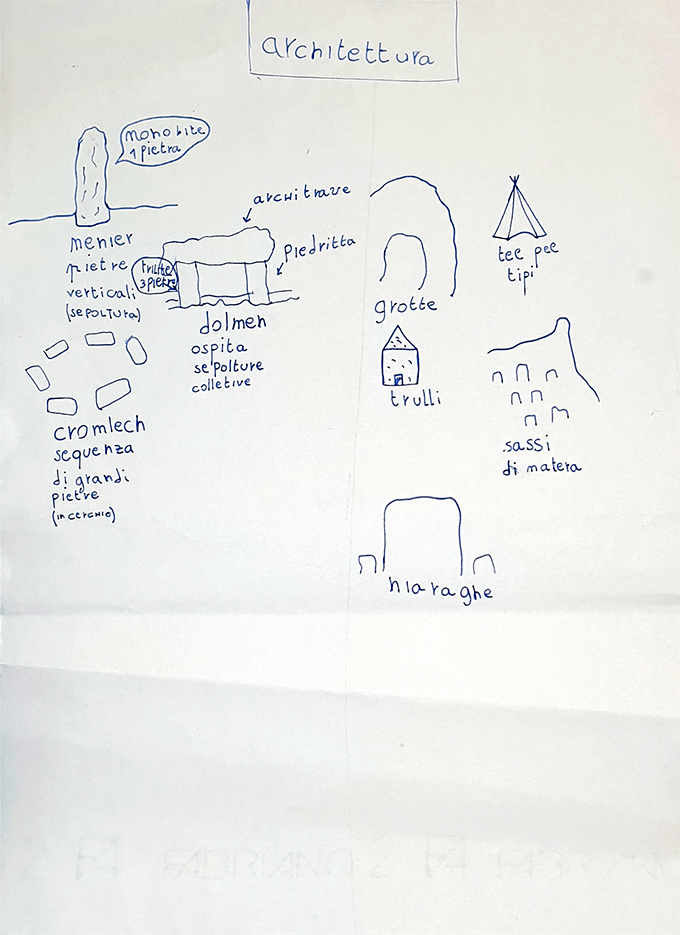 architettura
monolite
1 pietra
menier
pietre
verticali
(sepoltura)
architrave
piedritta
trilite
3 pietre
dolmen
ospita
sepolture
colletive
cromlech
sequenza
di grandi
pietre
(in cerchio)
grotte
tee pee
tipi
trulli
sassi
di matera
niaraghe